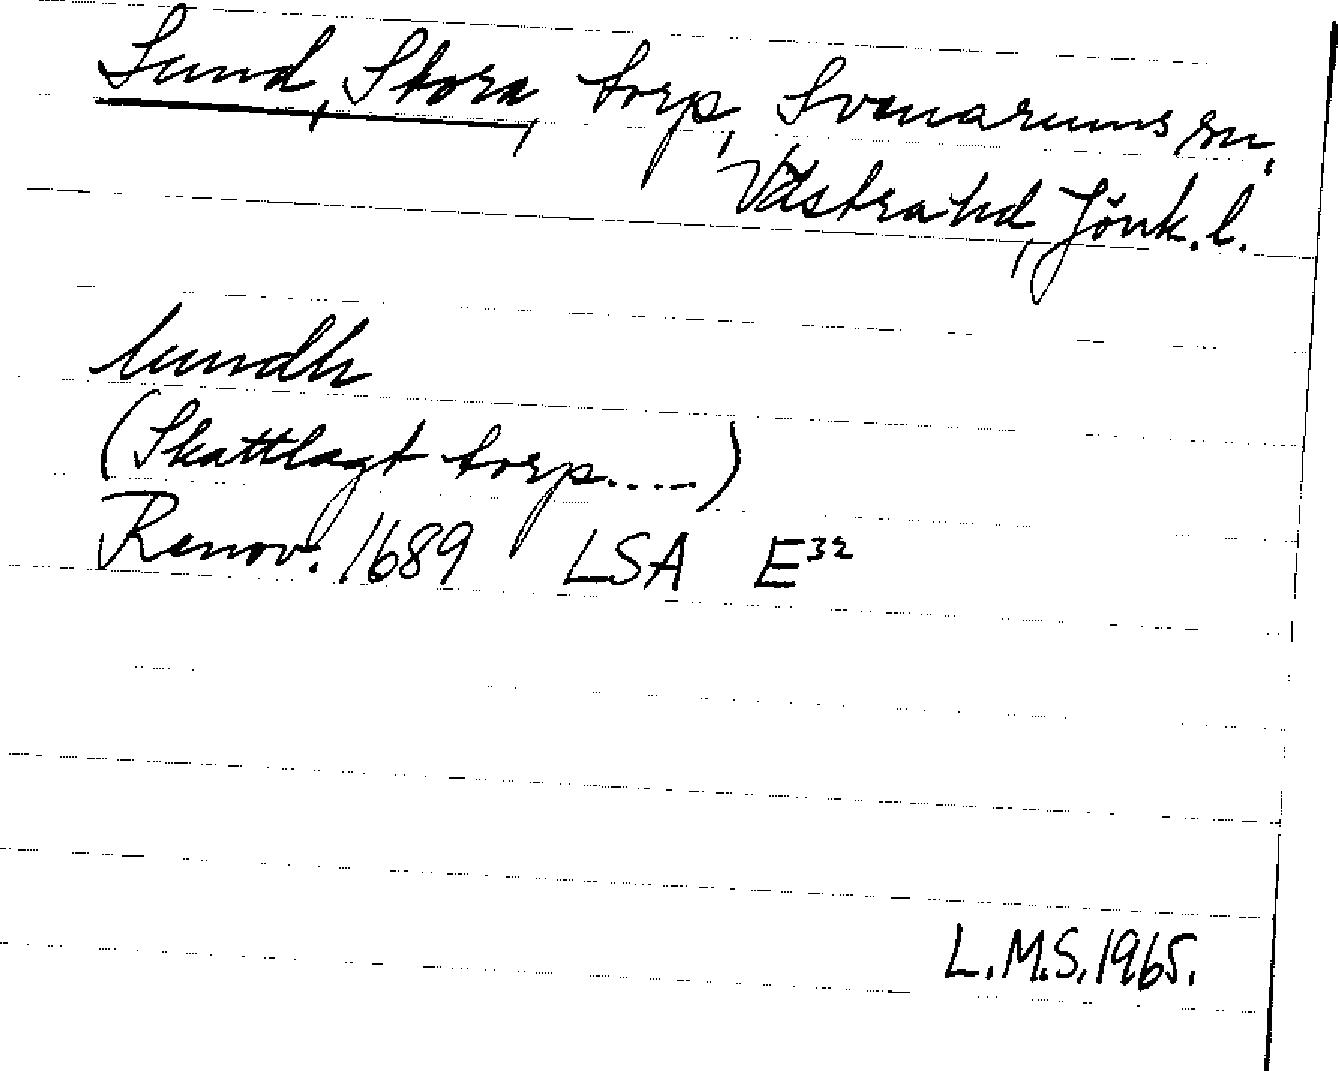 Sund, Stora, torp, Svenarums sn,
Västra hd, Jönk. l.
lundh
(Skattlagt torp.....)
Renov. 1689 LSA E³²
L.M.S. 1965.